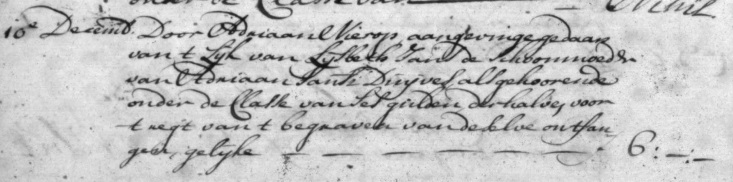 onder de Classe van Nihil
10e Decemb. Door Adriaan Nierop aangevinge gedaan
van 't Lijk van Lijsbeth Jans de Schoonmoeder
van Adriaan Jansz Duijves als gehoorende
onder de Classe van Ses gulden derhalve voor
't regt van 't begraven van deselve ontfan
gen gelijke — — — — — 6:—:—